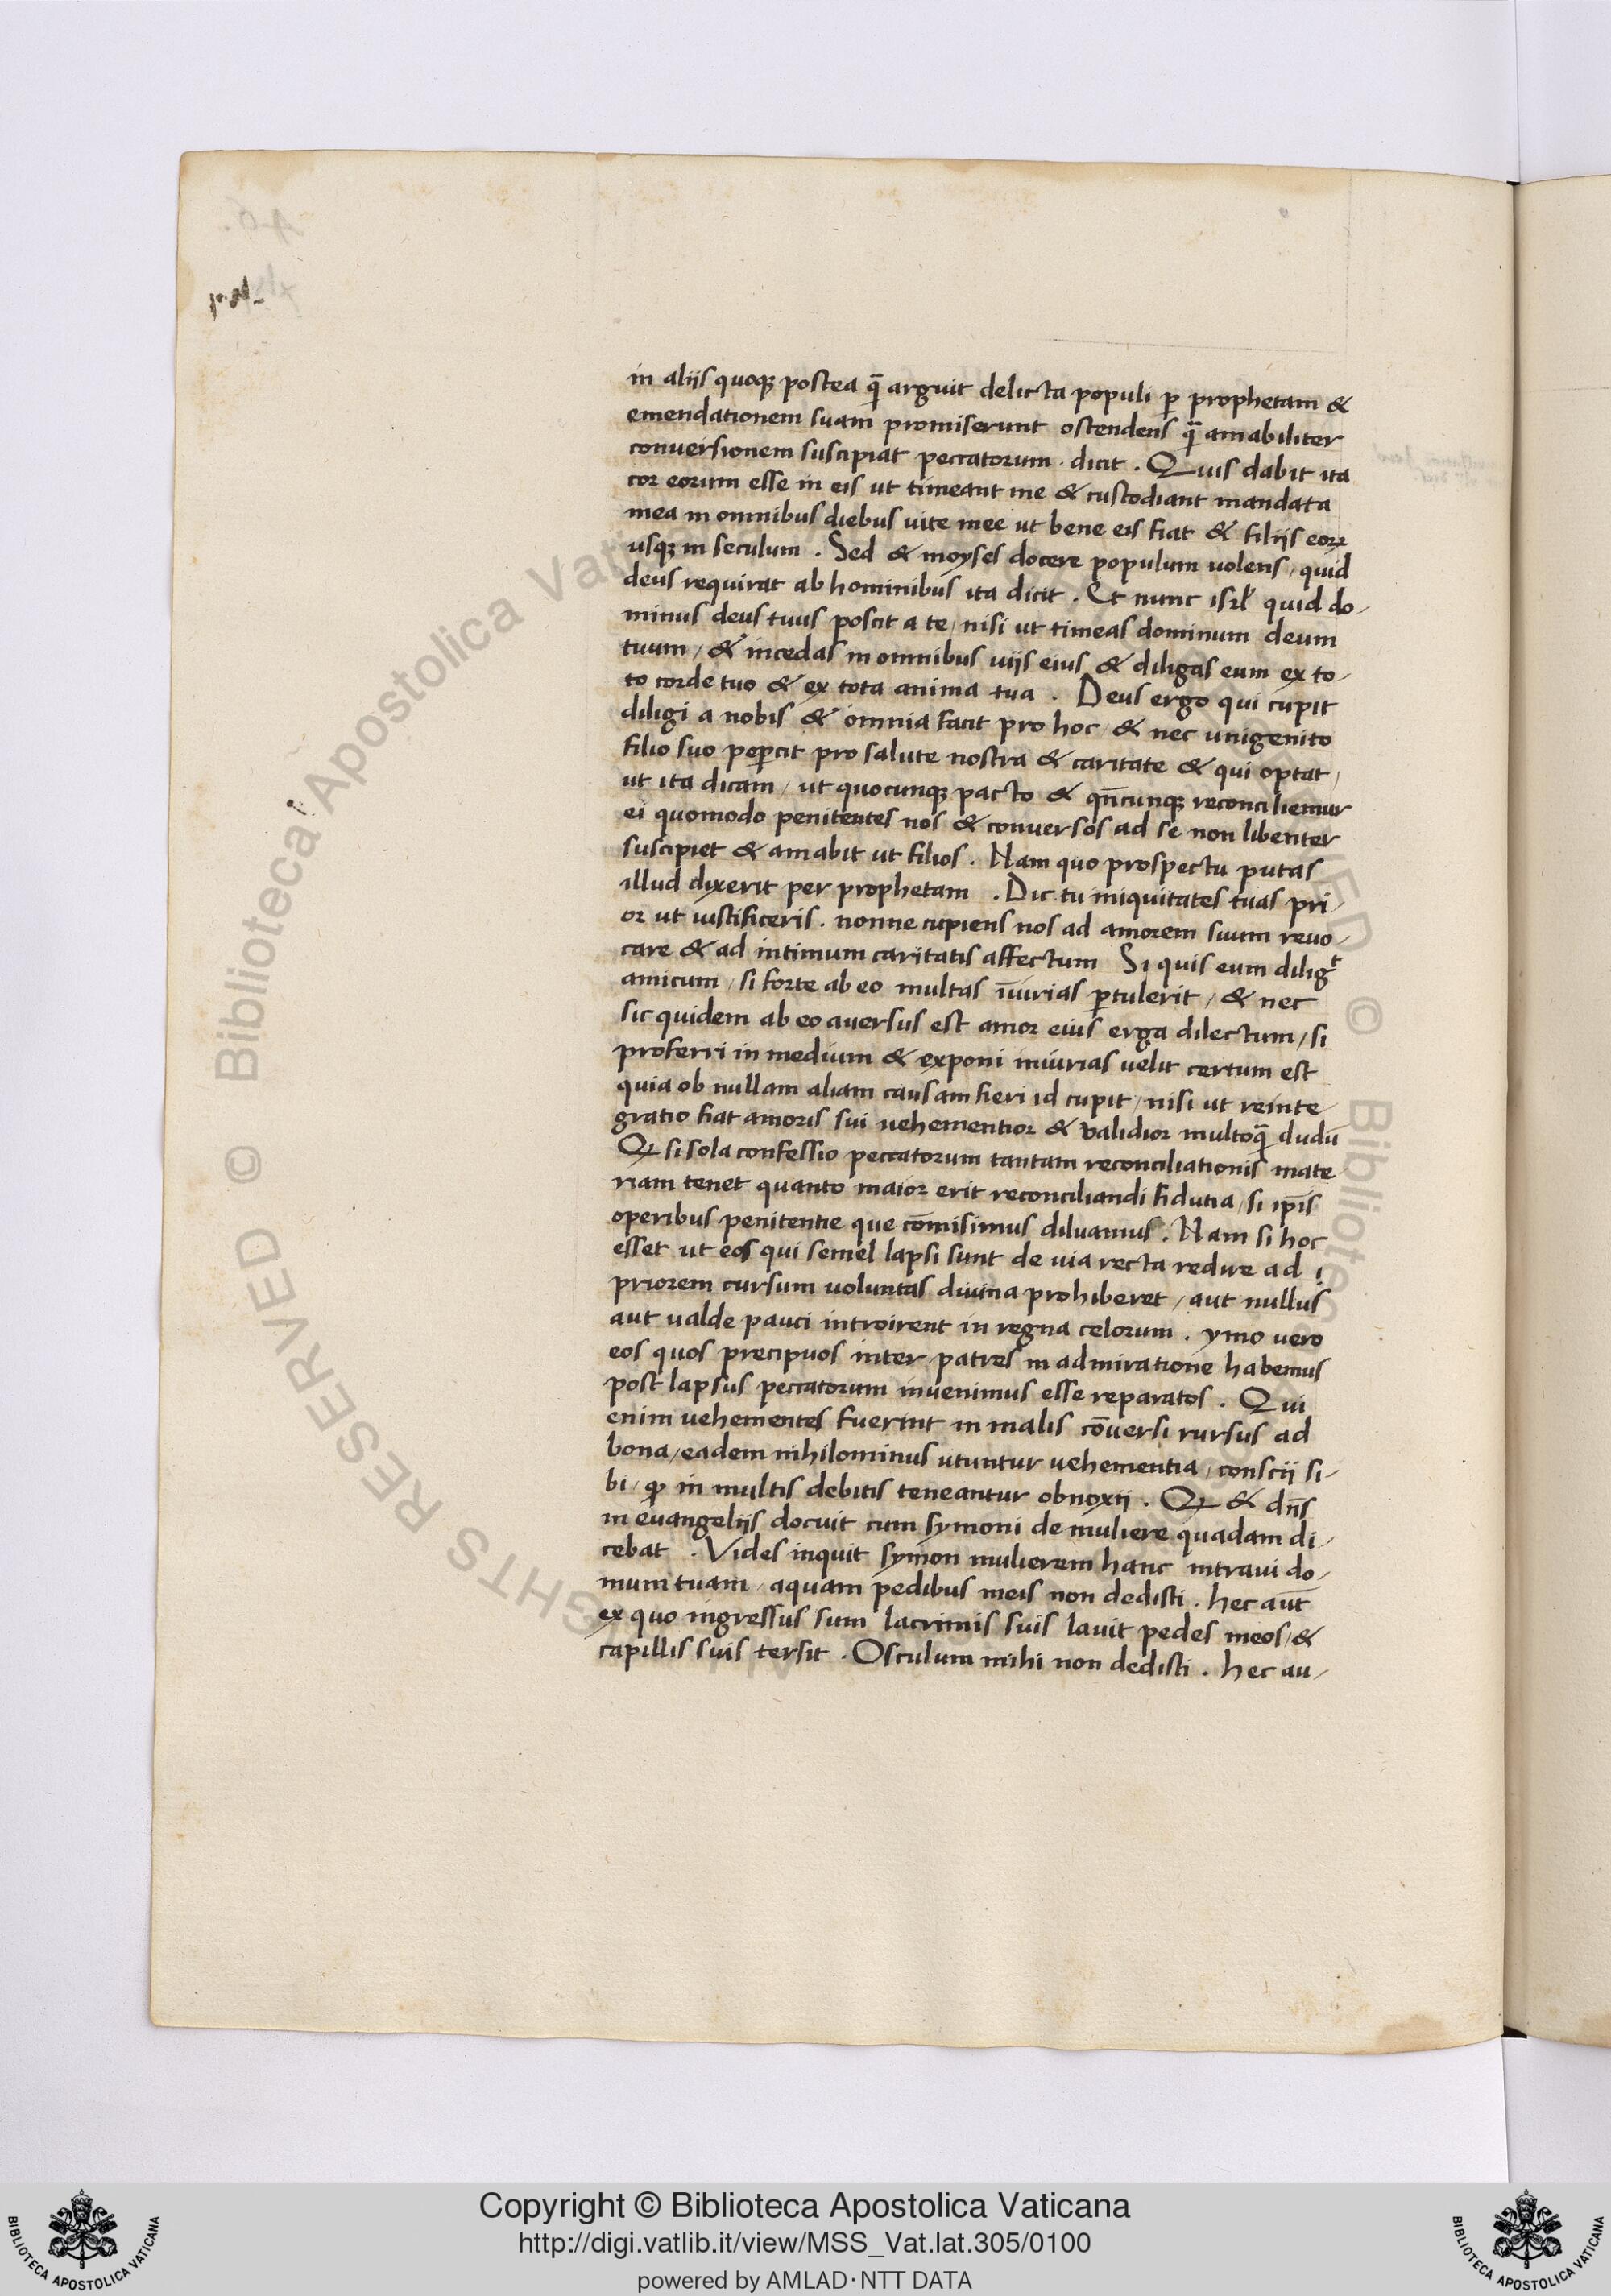 in aliis quoq; postea q̃ arguit delicta populi p̱ prophetam &
emendationem suam promiserunt ostendens q̃ amabiliter
conversionem suscipiat peccatorum . dicit . Quis dabit ita
cor eorum esse in eis ut timeant me & custodiant mandata
mea in omnibus diebus uite mee ut bene eis fiat & filiis eoꝝ
usq; in seculum . Sed & moyses docere populum uolens / quid
deus requirat ab hominibus ita dicit . Et nunc isrł quid do-
minus deus tuus poscit a te / nisi ut timeas dominum deum
tuum / & incedas in omnibus uiis eius & diligas eum ex to-
to corde tuo & ex tota anima tua . Deus ergo qui cupit
diligi a nobis & omnia facit pro hoc / & nec unigenito
filio suo peꝑcit pro salute nostra & caritate & qui optat /
ut ita dicam / ut quocunq; pacto & qñcunq; reconciliemur
ei quomodo penitentes nos & conversos ad se non libenter
suscipiet & amabit ut filios . Nam quo prospectu putas
illud dixerit per prophetam . Dic tu iniquitates tuas pri-
or ut iustificeris . nonne cupiens nos ad amorem suum revo-
care & ad intimum caritatis affectum Si quis eum diligᵗ
amicum / si forte ab eo multas iīurias ꝑtulerit / & nec
sic quidem ab eo aversus est amor eius erga dilectum / si
proferri in medium & exponi iniurias uelit certum est
quia ob nullam aliam causam fieri id cupit / nisi ut reinte-
gratio fiat amoris sui uehementior & validior multoq̃ dudū
Qꝫ si sola confessio peccatorum tantam reconciliationis mate
riam tenet quanto maior erit reconciliandi fidutia / si ip̄is
operibus penitentie que cōmisimus diluamus . Nam si hoc
esset ut eos qui semel lapsi sunt de uia recta redire ad
priorem cursum voluntas divina prohiberet / aut nullus
aut ualde pauci introirent in regna celorum . ymo vero
eos quos precipuos inter patres in admiratione habemus
post lapsus peccatorum invenimus esse reparatos . Qui
enim uehementes fuerint in malis cōuersi rursus ad
bona / eadem nihilominus utuntur uehementia / conscii si-
bi / ꝙ in multis debitis teneantur obnoxii . Qꝫ & dn̄s
in evangeliis docuit cum symoni de muliere quadam di-
cebat . Vides inquit symon mulierem hanc intravi do-
mum tuam / aquam pedibus meis non dedisti . hec aut̄
ex quo ingressus sum lacrimis suis lavit pedes meos / &
capillis suis tersit . Osculum mihi non dedisti . hec au-
© Biblioteca Apostolica Vaticana
RIGHTS RESERVED
© Biblioteca
Copyright © Biblioteca Apostolica Vaticana
http://digi.vatlib.it/view/MSS_Vat.lat.305/0100
powered by AMLAD·NTT DATA
BIBLIOTECA APOSTOLICA VATICANA
BIBLIOTECA APOSTOLICA VATICANA